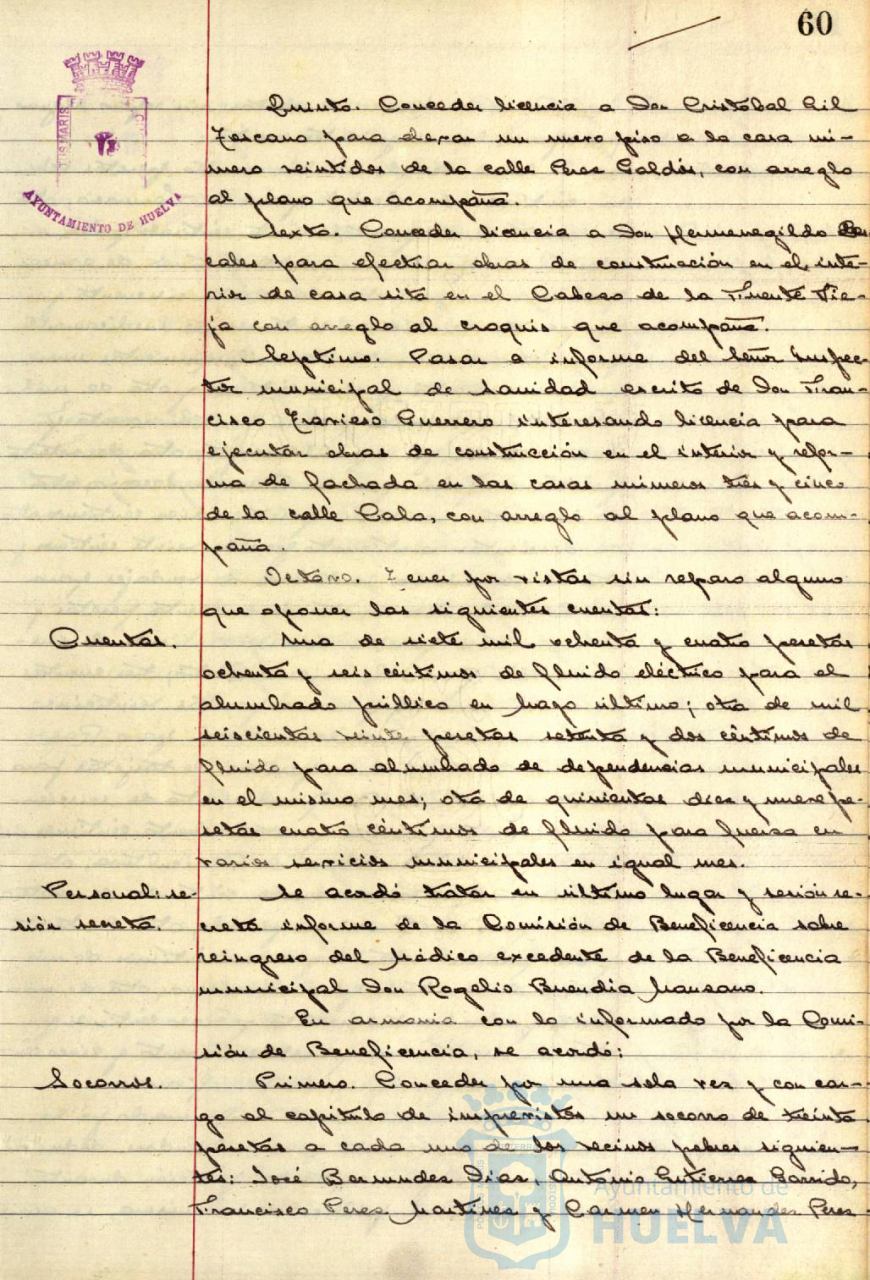 60
AYUNTAMIENTO DE HUELVA
Quinto. Conceder licencia a Don Cristobal Gil
Toscano para elevar un nuevo piso a la casa nú-
mero veintidos de la calle Perez Galdós, con arreglo
al plano que acompaña.
Sexto. Conceder licencia a Don Hermenegildo Bes-
cales para efectuar obras de construcción en el inte-
rior de casa sita en el Cabeso de la Fuente Vie-
ja con arreglo al croquis que acompaña.
Septimo. Pasar a informe del Señor Inspec-
tor municipal de sanidad escrito de Don Fran-
cisco Travieso Guerrero interesando licencia para
ejecutar obras de construcción en el interior y refor-
ma de fachada en las casas números tres y cinco
de la calle Cala, con arreglo al plano que acom-
paña.
Octavo. Tener por vistas sin reparo alguno
que oponer las siguientes cuentas:
Cuentas. Una de siete mil ochenta y cuatro pesetas
ochenta y seis céntimos de fluido eléctrico para el
alumbrado público en Mayo último; otra de mil
seiscientas veinte pesetas setenta y dos céntimos de
fluido para alumbrado de dependencias municipales
en el mismo mes; otra de quinientas diez y nueve pe-
setas cuatro céntimos de fluido para fuerza en
varios servicios municipales en igual mes.
Personal: se- Se acordó tratar en último lugar y sesión se-
sión secreta. creta informe de la Comisión de Beneficencia sobre
reingreso del Médico excedente de la Beneficencia
municipal Don Rogelio Buendia Manzano.
En armonia con lo informado por la Comi-
sión de Beneficencia, se acordó:
Socorros. Primero. Conceder por una sola vez y con car-
go al capitulo de imprevistos un socorro de treinta
pesetas a cada uno de los vecinos pobres siguien-
tes: José Bermudez Dias, Antonio Gutierrez Garrido,
Francisco Perez Martinez y Carmen Hernandez Perez
Ayuntamiento de
HUELVA